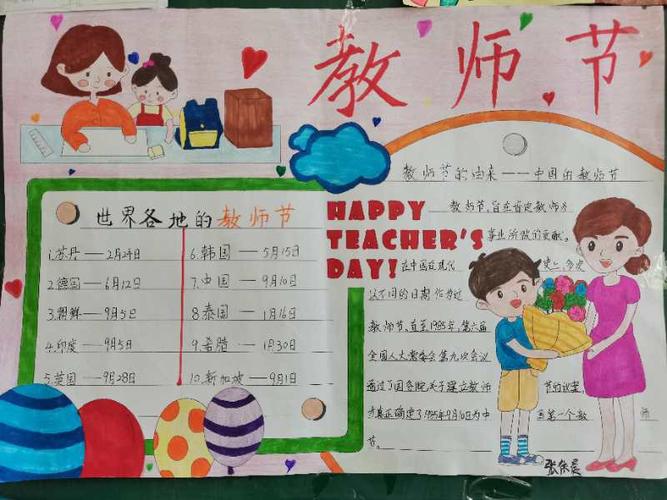 教师节
世界各地的教师节
1.苏丹——2月24日
2.德国——6月12日
3.朝鲜——9月5日
4.印度——9月5日
5.英国——9月28日
6.韩国——5月15日
7.中国——9月10日
8.泰国——1月16日
9.希腊——1月30日
10.新加坡——9月1日
HAPPY
TEACHER'S
DAY!
教师节的由来——中国的教师节
教师节,旨在肯定教师为
事业所做的贡献。
在中国近现代史上,多次
以不同的日期作为过
教师节,直至1985年,第六届
全国人大常委会第九次会议
通过了国务院关于建立教师节的议案,
才真正确定了1985年9月10日为中国第一个教
节。